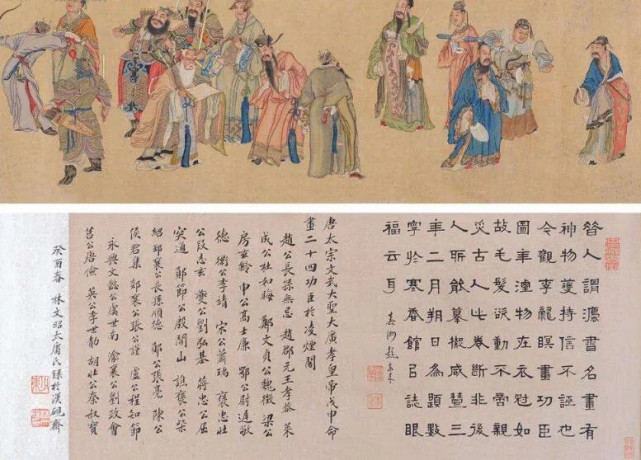 昔人謂灋書名畫有
神物護持信不誣也
今觀李龍眠畫功臣
圖年湮物在衣冠如
故毛髮流動不啻親
炙古人此卷斷非後
人所能摹擬咸豐三
年二月朔日為題數
字於寒香館㠯誌眼
福云耳
唐太宗文武大聖大廣孝皇帝戊申命
畫二十四功臣於凌煙閣
趙公長孫無忌 趙郡元王孝恭 萊
成公杜如晦 鄭文貞公魏徵 梁公
房玄齡 申公高士廉 鄂公尉遲敬
德 衛公李靖 宋公蕭瑀 褒忠壯
公段志玄 夔公劉弘基 蔣忠公屈
突通 鄖節公殷開山 譙襄公柴
紹 邳襄公長孫順德 鄖公張亮 陳公
侯君集 郯襄公張公謹 盧公程知節
永興文懿公虞世南 渝襄公劉政會
莒公唐儉 英公李世勣 胡壯公秦叔寶
癸酉春 林文昭 氏錄於漢硯齋